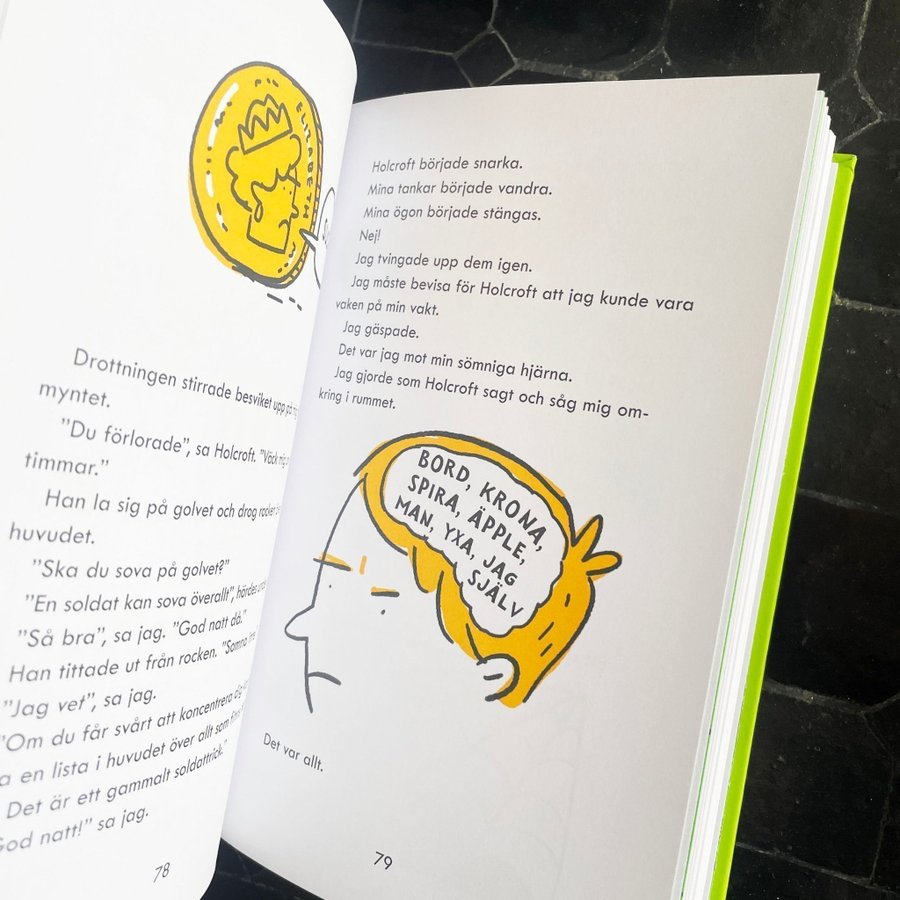 ELIZABETH
Drottningen stirrade besviket upp på
myntet.
"Du förlorade", sa Holcroft. "Väck mig
timmar."
Han la sig på golvet och drog rocken
huvudet.
"Ska du sova på golvet?"
"En soldat kan sova överallt", hördes
"Så bra", sa jag. "God natt då."
Han tittade ut från rocken. "Somna inte
"Jag vet", sa jag.
"Om du får svårt att koncentrera dig
en lista i huvudet över allt som finns
Det är ett gammalt soldattrick."
God natt!" sa jag.
78
Holcroft började snarka.
Mina tankar började vandra.
Mina ögon började stängas.
Nej!
Jag tvingade upp dem igen.
Jag måste bevisa för Holcroft att jag kunde vara
vaken på min vakt.
Jag gäspade.
Det var jag mot min sömniga hjärna.
Jag gjorde som Holcroft sagt och såg mig om-
kring i rummet.
BORD, KRONA,
SPIRA, ÄPPLE,
MAN, YXA, JAG
SJÄLV
Det var allt.
79